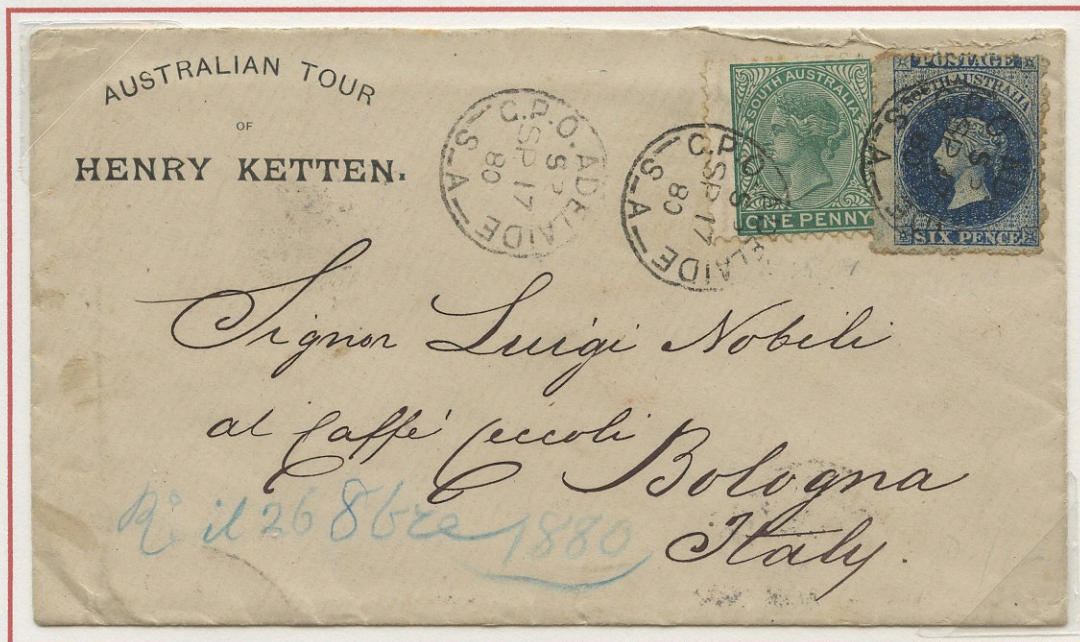 AUSTRALIAN TOUR
OF
HENRY KETTEN.
G.P.O. ADELAIDE
SP
SP 17
80
S-A
G.P.O. ADELAIDE
S
SP 17
80
S-A
SOUTH AUSTRALIA
ONE PENNY
POSTAGE
SOUTH AUSTRALIA
SIX PENCE
S-A
80
Signor Luigi Nobili
al Caffè Ceccoli
Bologna
Italy.
Rº il 26 8bre 1880